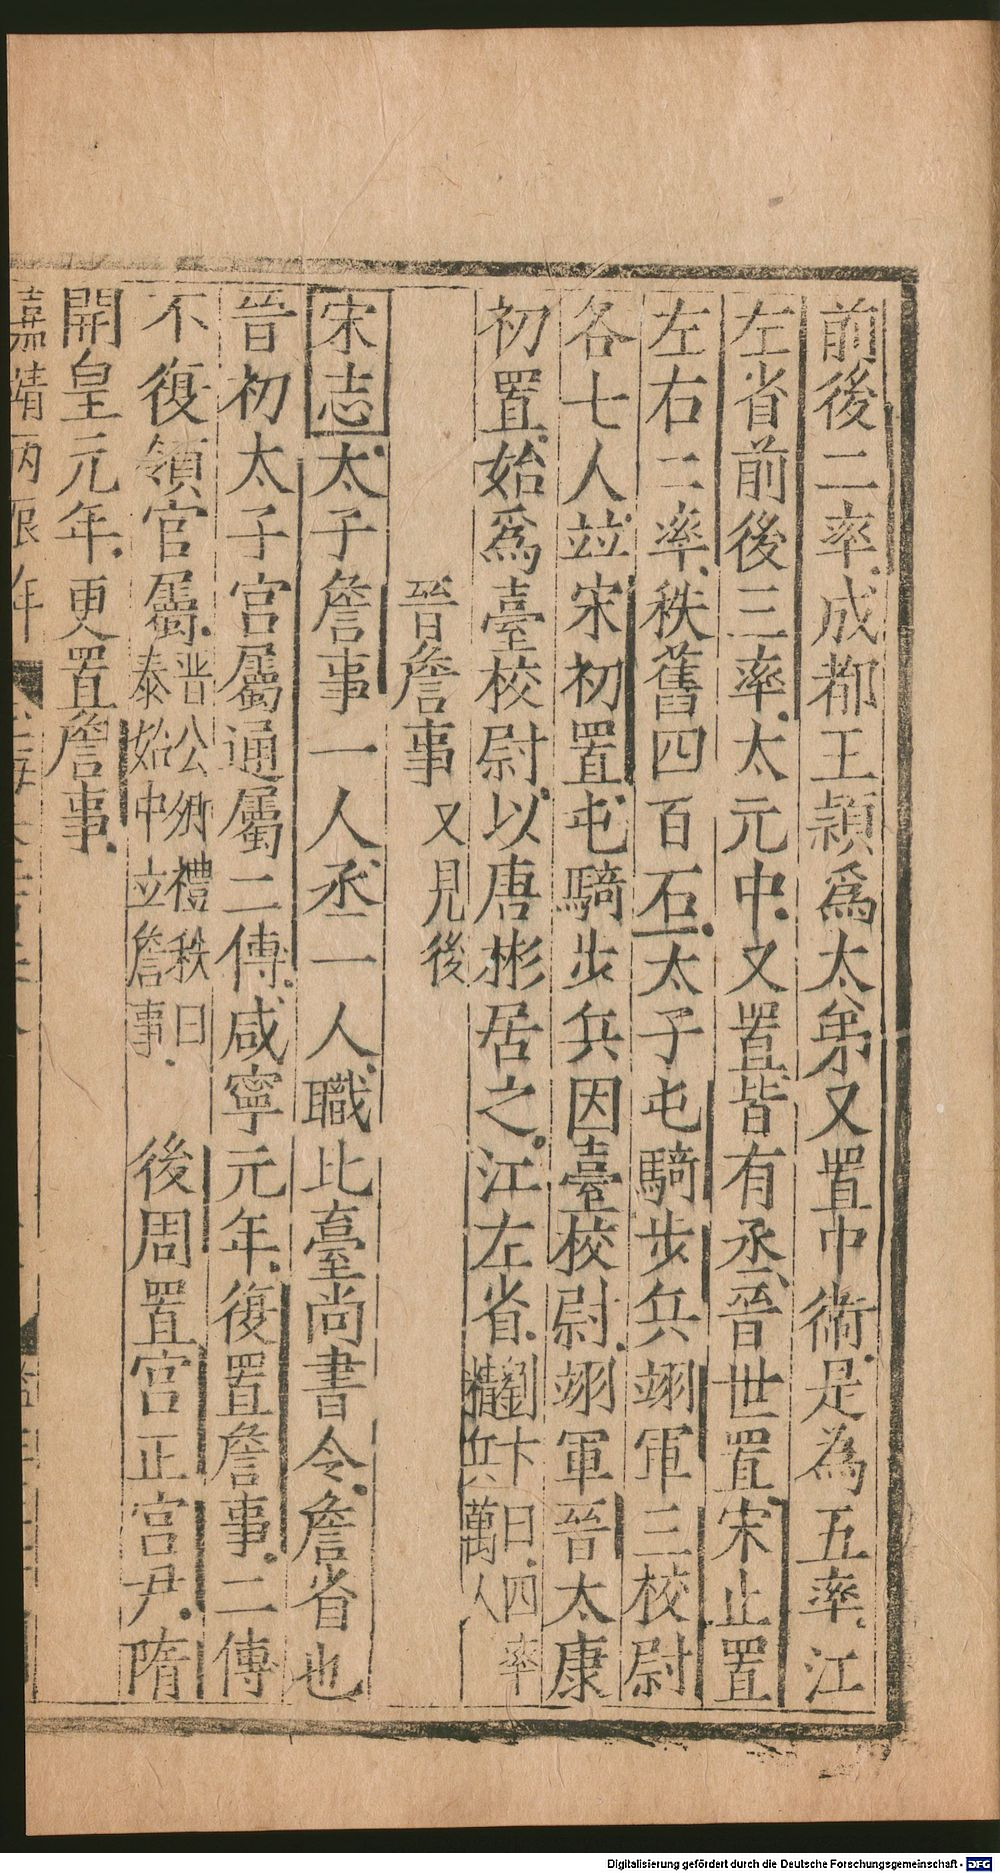 前後二率成都王穎爲太弟又置中衛是為五率江
左省前後三率太元中又置皆有丞晉世置宋止置
左右二率秩舊四百石太子屯騎步兵翊軍三校尉
各七人並宋初置屯騎步兵因臺校尉翊軍晉太康
初置始爲臺校尉以唐彬居之江左省劉卞曰四率
精兵萬人
晉詹事又見後
宋志太子詹事一人丞一人職比臺尚書令詹省也
晉初太子宮屬通屬二傅咸寧元年復置詹事二傅
不復領官屬晋公卿禮秩曰
泰始中立詹事
後周置宮正宮尹隋
開皇元年更置詹事
嘉靖丙辰年
Digitalisierung gefördert durch die Deutsche Forschungsgemeinschaft - DFG